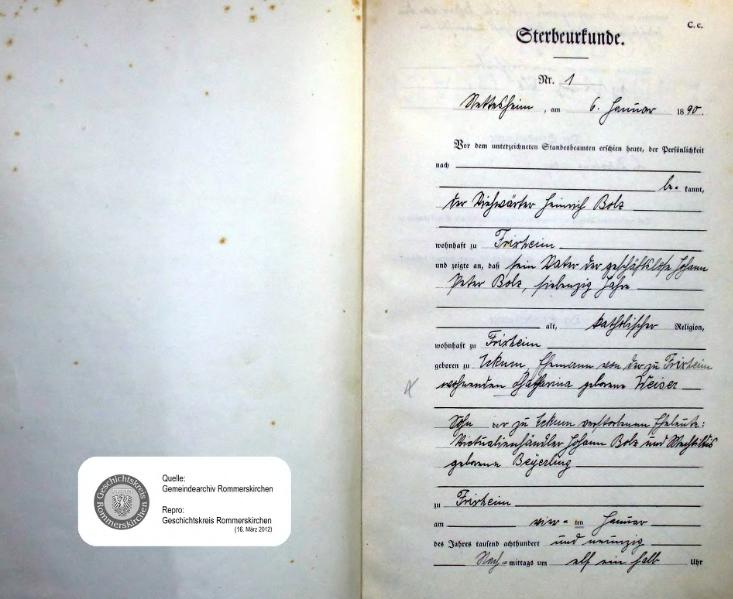 C. c.
Sterbeurkunde.
Nr. 1
Nettesheim, am 6. Januar 1890.
Vor dem unterzeichneten Standesbeamten erschien heute, der Persönlichkeit
nach
be- kannt,
der Viehwärter Heinrich Bolz
wohnhaft zu Frixheim
und zeigte an, daß sein Vater der geschäftslose Johann
Peter Bolz, siebenzig Jahre
alt, katholischer Religion,
wohnhaft zu Frixheim
geboren zu Eckum, Ehemann von der zu Frixheim
wohnenden Catharina geborene Weiser
Sohn der zu Eckum verstorbenen Eheleute:
Victualienhändler Johann Bolz und Mechtildis
geborene Beyerling
zu Frixheim
am vier-ten Januar
des Jahres tausend achthundert und neunzig
Nach-mittags um elf ein halb Uhr
Quelle:
Gemeindearchiv Rommerskirchen
Repro:
Geschichtskreis Rommerskirchen
(16. März 2012)
Geschichtskreis
Rommerskirchen